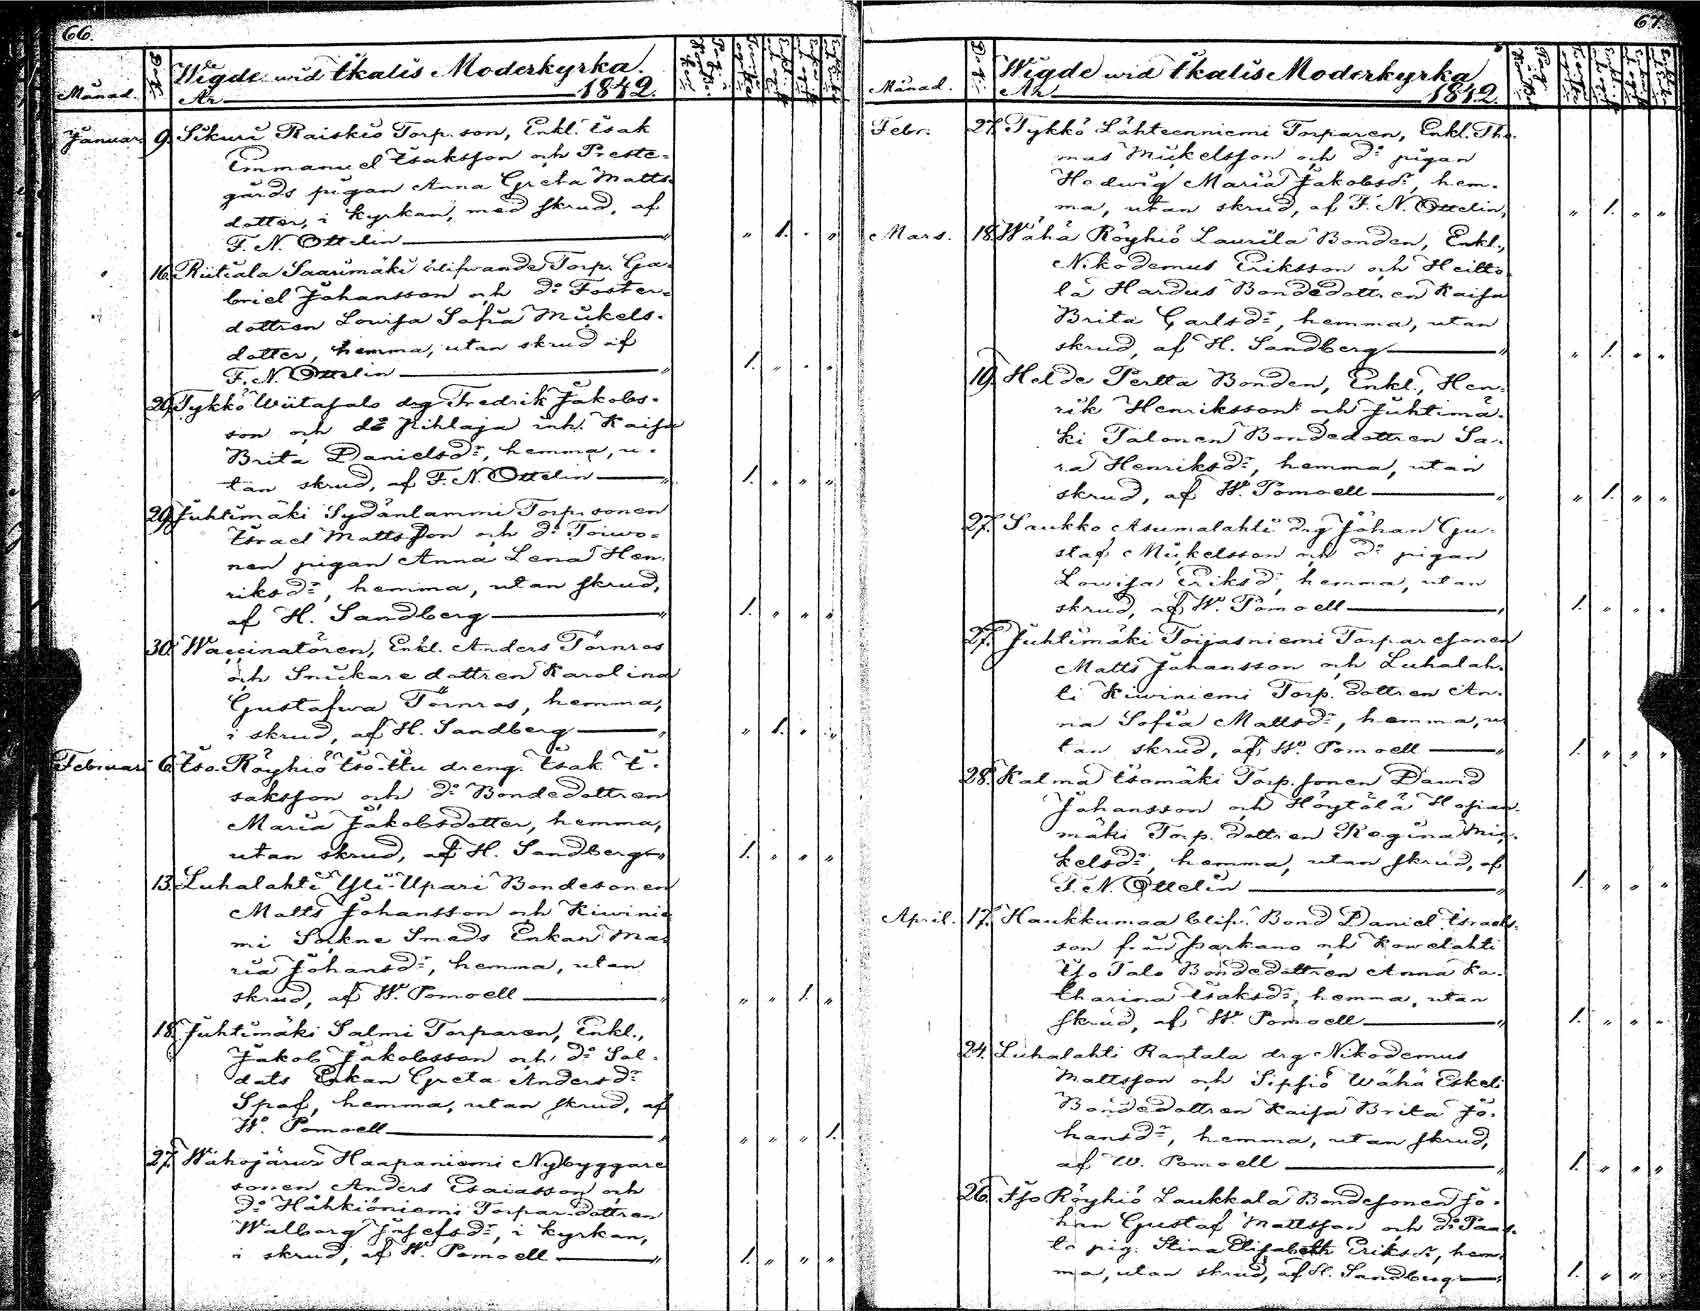 66.
Månad.
Wigde wid Ikalis Moderkyrka.
År 1842.
Januari 9. Sikuri Raiskio Torp. son, Enkl. Isak
Emmanuel Isaksson och Preste-
gårds pigan Anna Greta Matts-
dotter, i kyrkan, med skrud, af
F. N. Ottelin " 1. " "
16. Riitiala Saarimäki blifwande Torp. Ga-
briel Johansson och do Foster-
dottren Lowisa Sofia Mickels-
dotter, hemma, utan skrud af
F. N. Ottelin 1. " " "
20. Tykkö Wiitasalo drg Fredrik Jakobs-
son och do Pihlaja inh. Kaisa
Brita Danielsdr, hemma, u-
tan skrud, af F. N. Ottelin 1. " " "
29. Juhtimäki Sydänlammi Torp. sonen
Israel Mattsson och do Toiwo-
nen pigan Anna Lena Hen-
riksdr, hemma, utan skrud,
af H. Sandberg 1. " " "
30. Waccinatören, Enkl. Anders Törnros
och Snickare dottren Karolina
Gustafwa Törnros, hemma,
i skrud, af H. Sandberg " 1. " "
Februari 6. Iso-Röyhiö Iso-Ittu dreng. Isak I-
saksson och do Bondedottren
Maria Jakobsdotter, hemma,
utan skrud, af H. Sandberg 1. " " "
13. Luhalahti Yli-Upari Bondesonen
Matts Johansson och Kiwinie
mi Sockne Smeds Enkan Ma-
ria Johansdr, hemma, utan
skrud, af W. Pomoell " " 1. "
18. Juhtimäki Salmi Torparen, Enkl.,
Jakob Jakobsson och do Sol-
dats Enkan Greta Andersdr
Spof, hemma, utan skrud, af
W. Pomoell " " " 1.
27. Wahojärwi Haapaniemi Nybyggare
sonen Anders Esaiasson och
do Hähkiöniemi Torpar dottren
Walborg Josefsdr, i kyrkan,
i skrud, af W. Pomoell 1. " " "
67
Månad.
Wigde wid Ikalis Moderkyrka
År 1842.
Febr. 27. Tykkö Lähteenniemi Torparen, Enkl. Tho-
mas Mickelsson och do pigan
Hedwig Maria Jakobsdr, hem-
ma, utan skrud, af F. N. Ottelin, " 1. " "
Mars. 18. Wähä Röyhiö Laurila Bonden, Enkl.,
Nikodemus Eriksson och Heitto-
la Hardus Bondedottren Kaisa
Brita Carlsdr, hemma, utan
skrud, af H. Sandberg " 1. " "
19. Helde Pertta Bonden, Enkl., Hen-
rik Henriksson och Juhtimä-
ki Talonen Bondedottren Sa-
ra Henriksdr, hemma, utan
skrud, af W. Pomoell " 1. " "
27. Saukko Asumalahti drg Johan Gu-
staf Mickelsson och do pigan
Lowisa Eriksdr, hemma, utan
skrud, af W. Pomoell 1. " " "
27. Juhtimäki Toijasniemi Torparesonen
Matts Johansson och Luhalah-
ti Kiwiniemi Torp. dottren An-
na Sofia Mattsdr, hemma, u
tan skrud, af W. Pomoell 1. " " "
28. Kalma Isomäki Torp. sonen Dawid
Johansson och Höytölä Hojian-
mäki Torp. dottren Regina Mic-
kelsdr, hemma, utan skrud, af
F. N. Ottelin 1. " " "
April. 17. Haukkumaa blif. Bond Daniel Israels-
son från Parkano och Kowelahti
Iso Talo Bondedottren Anna Ka-
tharina Isaksdr, hemma, utan
skrud, af W. Pomoell 1. " " "
24. Luhalahti Rantala drg Nikodemus
Mattsson och Sipsiö Wähä Eskeli
Bondedottren Kaisa Brita Jo-
hansdr, hemma, utan skrud,
af W. Pomoell 1. " " "
26. Iso Röyhiö Laukkala Bondesonen Jo-
han Gustaf Mattsson och do Paas-
to pig. Stina Elisabeth Eriksdr, hem-
ma, utan skrud, af H. Sandberg 1. " "